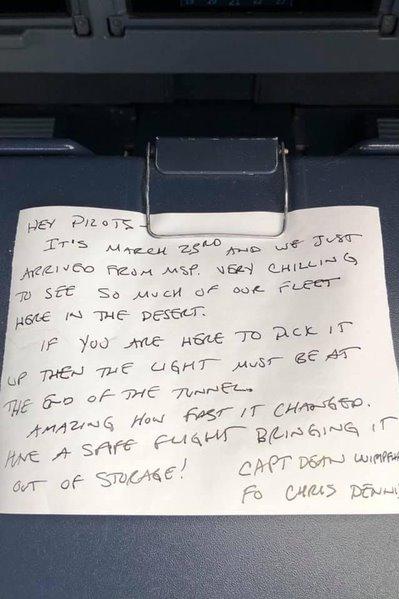 HEY PILOTS -
IT'S MARCH 23RD AND WE JUST
ARRIVED FROM MSP. VERY CHILLING
TO SEE SO MUCH OF OUR FLEET
HERE IN THE DESERT.
IF YOU ARE HERE TO PICK IT
UP THEN THE LIGHT MUST BE AT
THE END OF THE TUNNEL.
AMAZING HOW FAST IT CHANGED.
HAVE A SAFE FLIGHT BRINGING IT
OUT OF STORAGE!
CAPT DEAN
FO CHRIS DENNI